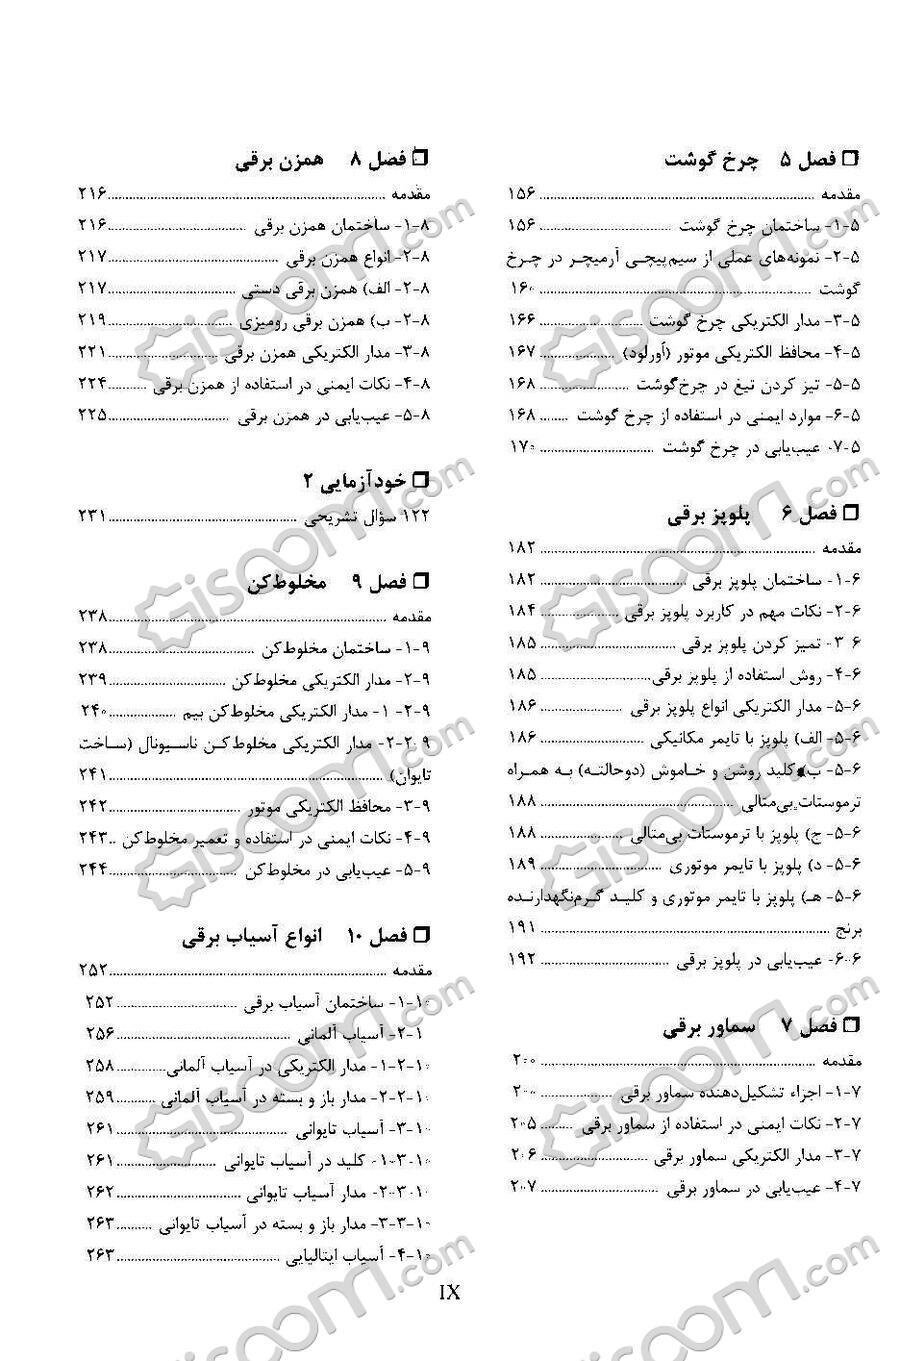 ❒ فصل ۵ چرخ گوشت
مقدمه ........ ۱۵۶
۵-۱- ساختمان چرخ گوشت ........ ۱۵۶
۵-۲- نمونه‌های عملی از سیم‌پیچی آرمیچر در چرخ
گوشت ........ ۱۶۰
۵-۳- مدار الکتریکی چرخ گوشت ........ ۱۶۶
۵-۴- محافظ الکتریکی موتور (آورلود) ........ ۱۶۷
۵-۵- تیز کردن تیغ در چرخ‌گوشت ........ ۱۶۸
۵-۶- موارد ایمنی در استفاده از چرخ گوشت ........ ۱۶۸
۵-۷- عیب‌یابی در چرخ گوشت ........ ۱۷۰
❒ فصل ۶ پلوپز برقی
مقدمه ........ ۱۸۲
۶-۱- ساختمان پلوپز برقی ........ ۱۸۲
۶-۲- نکات مهم در کاربرد پلوپز برقی ........ ۱۸۴
۶-۳- تمیز کردن پلوپز برقی ........ ۱۸۵
۶-۴- روش استفاده از پلوپز برقی ........ ۱۸۵
۶-۵- مدار الکتریکی انواع پلوپز برقی ........ ۱۸۶
۶-۵- الف) پلوپز با تایمر مکانیکی ........ ۱۸۶
۶-۵- ب) کلید روشن و خاموش (دوحالته) به همراه
ترموستات بی‌متالی ........ ۱۸۸
۶-۵- ج) پلوپز با ترموستات بی‌متالی ........ ۱۸۸
۶-۵- د) پلوپز با تایمر موتوری ........ ۱۸۹
۶-۵- هـ) پلوپز با تایمر موتوری و کلید گرم‌نگهدارنده
برنج ........ ۱۹۱
۶-۶- عیب‌یابی در پلوپز برقی ........ ۱۹۲
❒ فصل ۷ سماور برقی
مقدمه ........ ۲۰۰
۷-۱- اجزاء تشکیل‌دهنده سماور برقی ........ ۲۰۰
۷-۲- نکات ایمنی در استفاده از سماور برقی ........ ۲۰۵
۷-۳- مدار الکتریکی سماور برقی ........ ۲۰۶
۷-۴- عیب‌یابی در سماور برقی ........ ۲۰۷
❒ فصل ۸ همزن برقی
مقدمه ........ ۲۱۶
۸-۱- ساختمان همزن برقی ........ ۲۱۶
۸-۲- انواع همزن برقی ........ ۲۱۷
۸-۲- الف) همزن برقی دستی ........ ۲۱۷
۸-۲- ب) همزن برقی رومیزی ........ ۲۱۹
۸-۳- مدار الکتریکی همزن برقی ........ ۲۲۱
۸-۴- نکات ایمنی در استفاده از همزن برقی ........ ۲۲۴
۸-۵- عیب‌یابی در همزن برقی ........ ۲۲۵
❒ خودآزمایی ۲
۱۲۲ سؤال تشریحی ........ ۲۳۱
❒ فصل ۹ مخلوط‌کن
مقدمه ........ ۲۳۸
۹-۱- ساختمان مخلوط‌کن ........ ۲۳۸
۹-۲- مدار الکتریکی مخلوط‌کن ........ ۲۳۹
۹-۲- ۱- مدار الکتریکی مخلوط‌کن بیم ........ ۲۴۰
۹-۲-۲- مدار الکتریکی مخلوط‌کن ناسیونال (ساخت
تایوان) ........ ۲۴۱
۹-۳- محافظ الکتریکی موتور ........ ۲۴۲
۹-۴- نکات ایمنی در استفاده و تعمیر مخلوط‌کن .. ۲۴۳
۹-۵- عیب‌یابی در مخلوط‌کن ........ ۲۴۴
❒ فصل ۱۰ انواع آسیاب برقی
مقدمه ........ ۲۵۲
۱۰-۱- ساختمان آسیاب برقی ........ ۲۵۲
۱۰-۲- آسیاب آلمانی ........ ۲۵۶
۱۰-۲-۱- مدار الکتریکی در آسیاب آلمانی ........ ۲۵۸
۱۰-۲-۲- مدار باز و بسته در آسیاب آلمانی ........ ۲۵۹
۱۰-۳- آسیاب تایوانی ........ ۲۶۱
۱۰-۳-۱- کلید در آسیاب تایوانی ........ ۲۶۱
۱۰-۳-۲- مدار آسیاب تایوانی ........ ۲۶۲
۱۰-۳-۳- مدار باز و بسته در آسیاب تایوانی ........ ۲۶۳
۱۰-۴- آسیاب ایتالیایی ........ ۲۶۳
IX
Giscoom.com